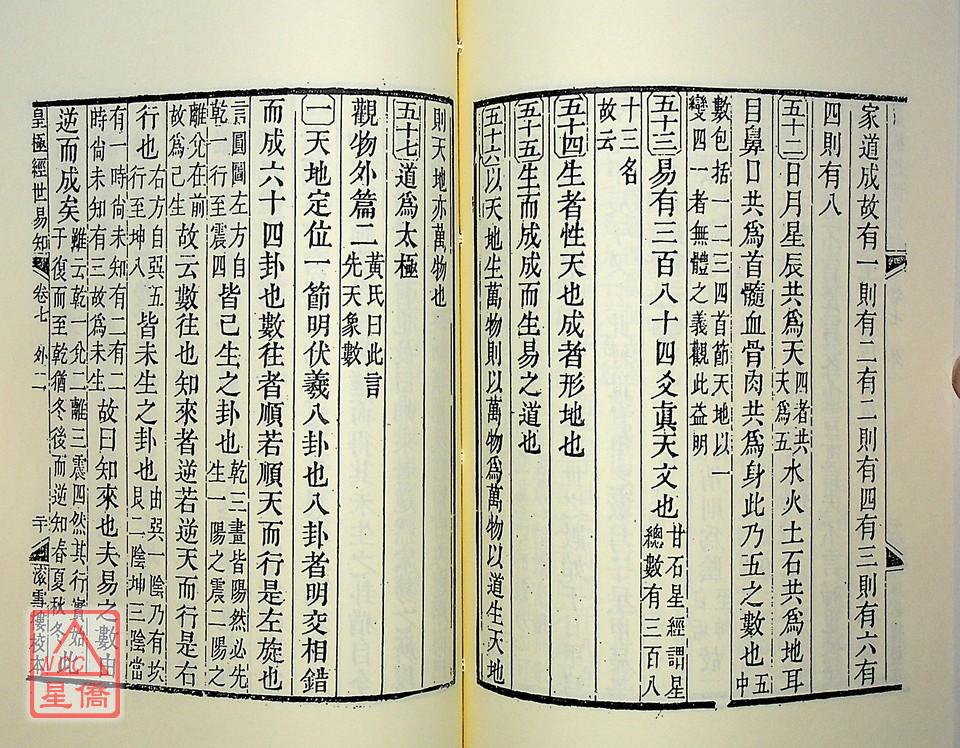 家道成故有一則有二有二則有四有三則有六有
四則有八
五十二日月星辰共爲天四者共天爲五水火土石共爲地耳
目鼻口共爲首髓血骨肉共爲身此乃五之數也五中
數包括一二三四首節天地以一
變四一者無體之義觀此益明
五十三易有三百八十四爻眞天文也甘石星經謂星總數有三百八
十三名
故云
五十四生者性天也成者形地也
五十五生而成成而生易之道也
五十六以天地生萬物則以萬物爲萬物以道生天地
則天地亦萬物也
五十七道爲太極
觀物外篇二黃氏曰此言先天象數
一天地定位一節明伏羲八卦也八卦者明交相錯
而成六十四卦也數往者順若順天而行是左旋也
言圓圖左方自乾一行至震四皆已生之卦也乾三畫皆陽然必先生一陽之震二陽之
離兌在前故爲已生故云數往也知來者逆若逆天而行是右
行也右方自巽五行至坤八皆未生之卦也由巽一陰乃有坎艮二陰坤三陰當
有一時尚未知有二有二時尚未知有三故爲未生故曰知來也夫易之數由
逆而成矣雖云乾一兌二離三震四然其行實始此于復而至乾猶冬後而逆知春夏秋冬
皇極經世易知 卷七 外二 二十 滾雪樓校本
NCC
星僑